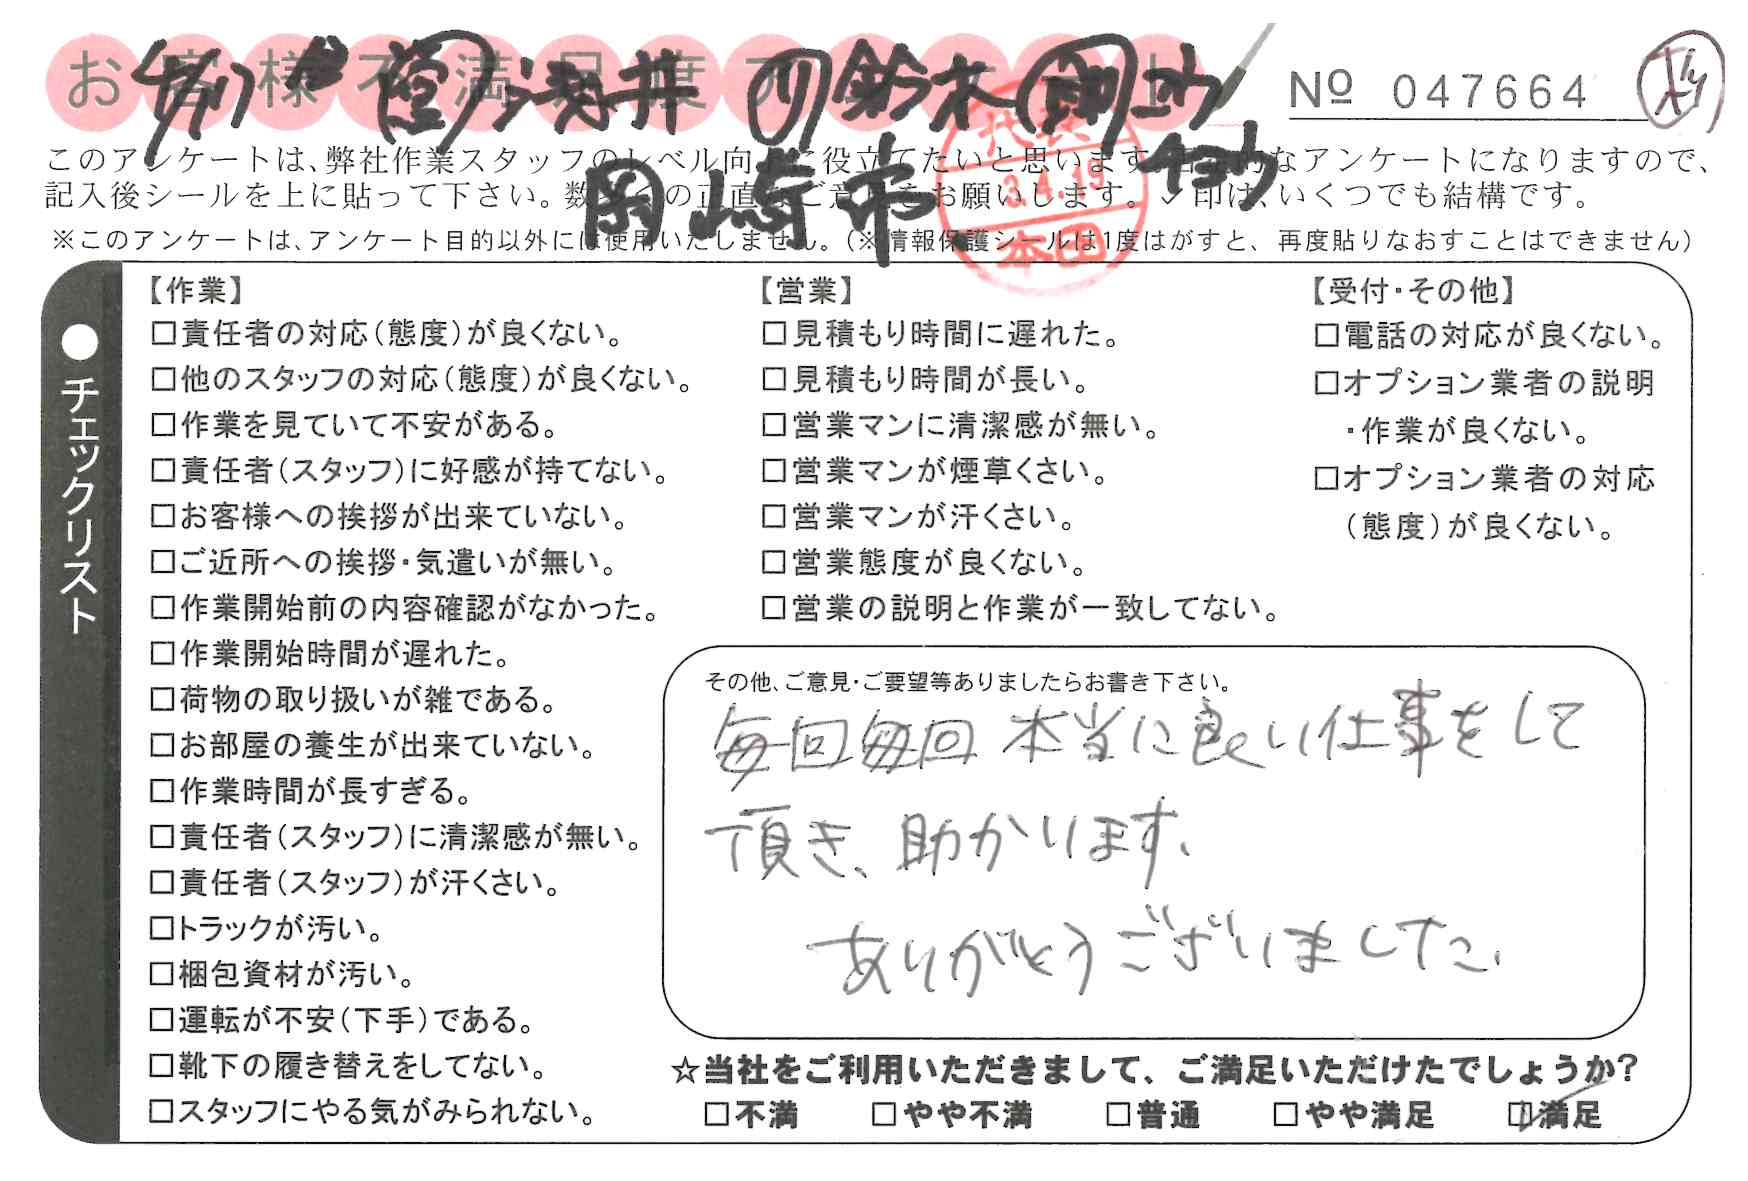 お客様不満足度アンケート
№ 047664
浅井 鈴木
岡崎市
代表
3.4.19
本田
このアンケートは、弊社作業スタッフのレベル向上に役立てたいと思います。なアンケートになりますので、
記入後シールを上に貼って下さい。数多くの正直なご意見をお願いします。✓印は、いくつでも結構です。
※このアンケートは、アンケート目的以外には使用いたしません。(※情報保護シールは1度はがすと、再度貼りなおすことはできません)
●チェックリスト
【作業】
□責任者の対応(態度)が良くない。
□他のスタッフの対応(態度)が良くない。
□作業を見ていて不安がある。
□責任者(スタッフ)に好感が持てない。
□お客様への挨拶が出来ていない。
□ご近所への挨拶・気遣いが無い。
□作業開始前の内容確認がなかった。
□作業開始時間が遅れた。
□荷物の取り扱いが雑である。
□お部屋の養生が出来ていない。
□作業時間が長すぎる。
□責任者(スタッフ)に清潔感が無い。
□責任者(スタッフ)が汗くさい。
□トラックが汚い。
□梱包資材が汚い。
□運転が不安(下手)である。
□靴下の履き替えをしてない。
□スタッフにやる気がみられない。
【営業】
□見積もり時間に遅れた。
□見積もり時間が長い。
□営業マンに清潔感が無い。
□営業マンが煙草くさい。
□営業マンが汗くさい。
□営業態度が良くない。
□営業の説明と作業が一致してない。
【受付・その他】
□電話の対応が良くない。
□オプション業者の説明
・作業が良くない。
□オプション業者の対応
(態度)が良くない。
その他、ご意見・ご要望等ありましたらお書き下さい。
毎回毎回 本当に良い仕事をして
頂き、助かります、
ありがとうございました、
☆当社をご利用いただきまして、ご満足いただけたでしょうか?
□不満 □やや不満 □普通 □やや満足 ☑満足